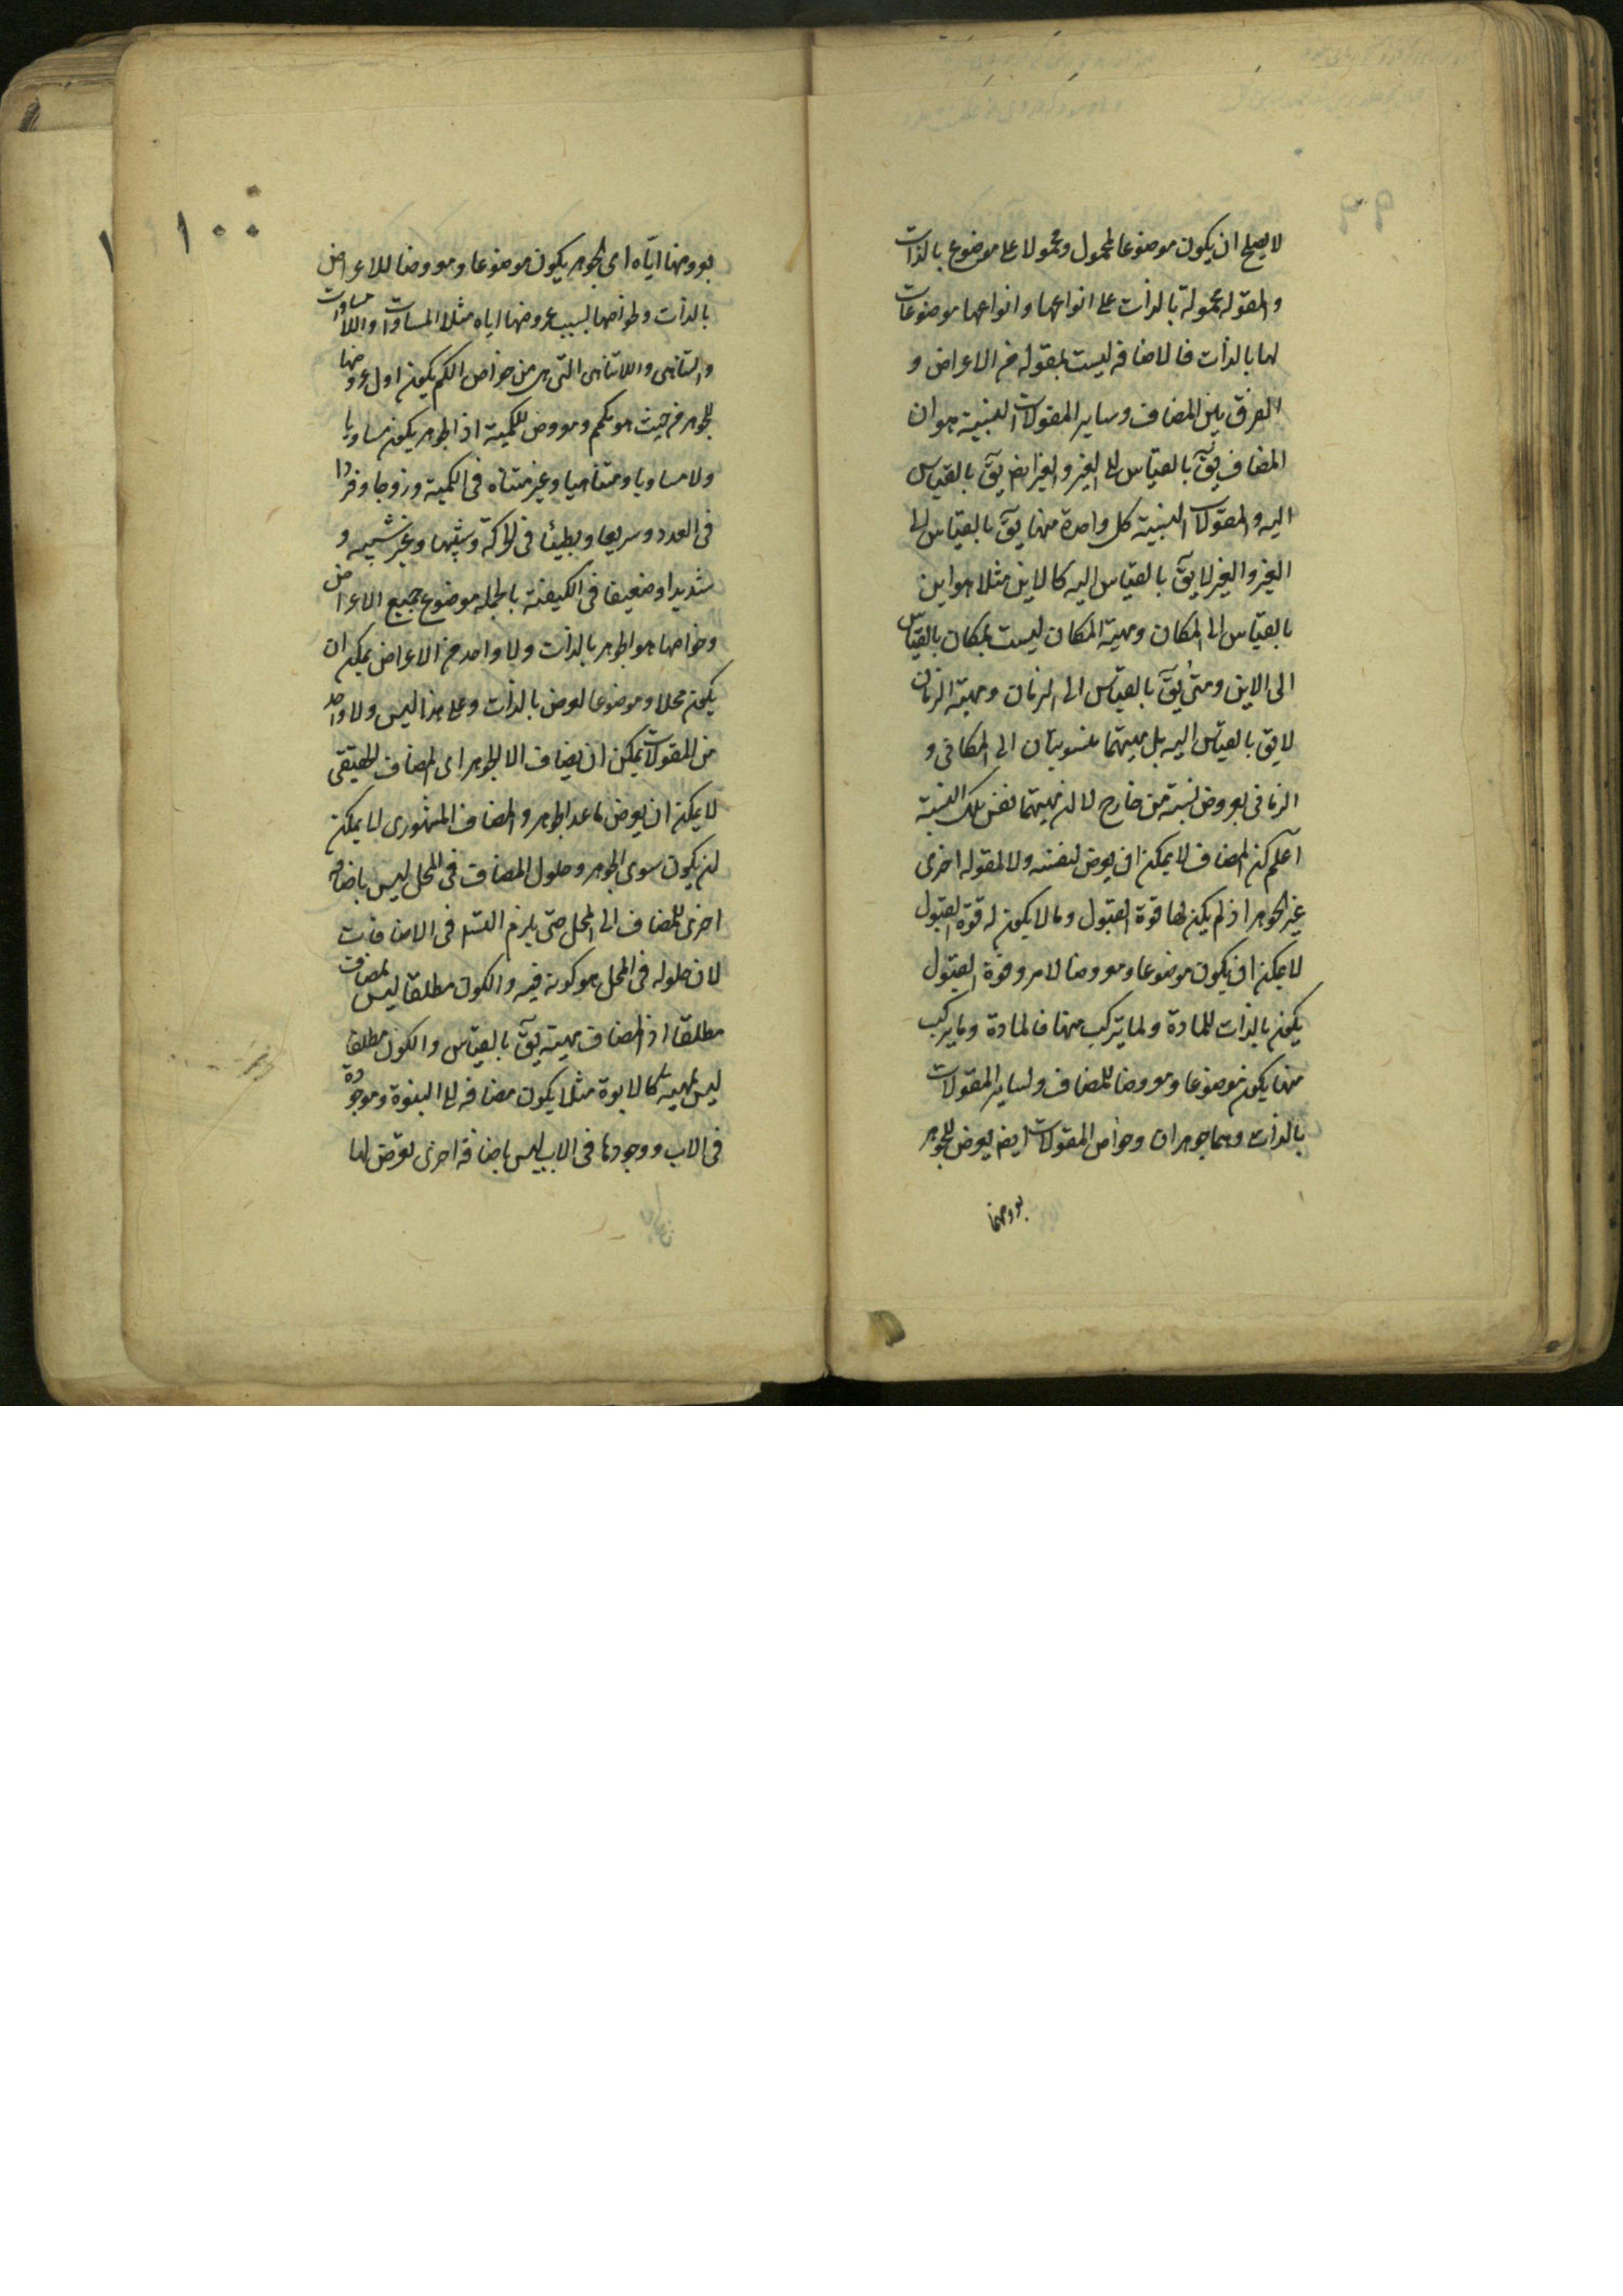 لا يصلح ان يكون موضوعا لمحمول ومحمولا على موضوع بالذات
والمقوله محمولة بالذات على انواعها وانواعها موضوعات
لها بالذات فالاضافه ليست بمقوله من الاعراض و
الفرق بين المضاف وساير المقولات النسبية هو ان
المضاف يقّ بالقياس الى الغير والغير ايضا يقّ بالقياس
اليه والمقولات النسبية كل واحدة منها يقّ بالقياس الى
الغير والغير لا يقّ بالقياس اليه كالاين مثلا هو اين
بالقياس الى المكان ومهية المكان ليست بمكان بالقياس
الى الاين ومتى يقّ بالقياس الى الزمان ومهية الزمان
لا يق بالقياس اليه بل مهيتهما منسوبتان الى المكانى و
الزمانى بعروض نسبة من خارج لا لان مهيتهما نفس تلك النسبة
اعلم ان المضاف لا يمكن ان يعرض لنفسه ولا لمقوله اخرى
غير الجوهر اذ لم يكن لها قوة القبول وما لا يكون له قوة القبول
لا يمكن ان يكون موضوعا ومعروضا لامر وقوة القبول
يكون بالذات للمادة ولما يتركب منها فالمادة وما يتركب
منها يكون موضوعا ومعروضا للمضاف ولساير المقولات
بالذات وهما جوهران وخواص المقولات ايضا يعرض للجوهر
بعروضها
١٠٠
بعروضها اياه اى الجوهر يكون موضوعا ومعروضا للاعراض
بالذات وخواصها بسبب عروضها اياه مثلا المساوات واللامساوات
والتناهى واللاتناهى التى هى من خواص الكم يكون اول عروضها
للجوهر من حيث هو متكمم ومعروض للكمية اذ الجوهر يكون مساويا
ولا مساويا ومتناهيا وغير متناه فى الكمية وزوجا وفردا
فى العدد وسريعا وبطيئا فى الحركة وشبيها وغير شبيه و
شديدا وضعيفا فى الكيفية بالجمله موضوع جميع الاعراض
وخواصها هو الجوهر بالذات ولا واحد من الاعراض يمكن ان
يكون محلا وموضوعا لعرض بالذات وعلى هذا ليس ولا واحد
من المقولات يمكن ان يضاف الا الجوهر اى المضاف الحقيقى
لا يمكن ان يعرض ما عدا الجوهر والمضاف المشهورى لا يمكن
ان يكون سوى الجوهر وحلول المضاف فى المحل ليس باضافة
اخرى للمضاف الى المحل حتى يلزم التس فى الاضافات
لان حلوله فى المحل هو كونه فيه والكون مطلقا ليس بمضاف
مطلقا اذ المضاف مهية يقّ بالقياس والكون مطلقا
ليس بمهية كالابوة مثلا يكون مضافه الى البنوة وموجودة
فى الاب ووجودها فى الاب ليس باضافة اخرى تعرض لها